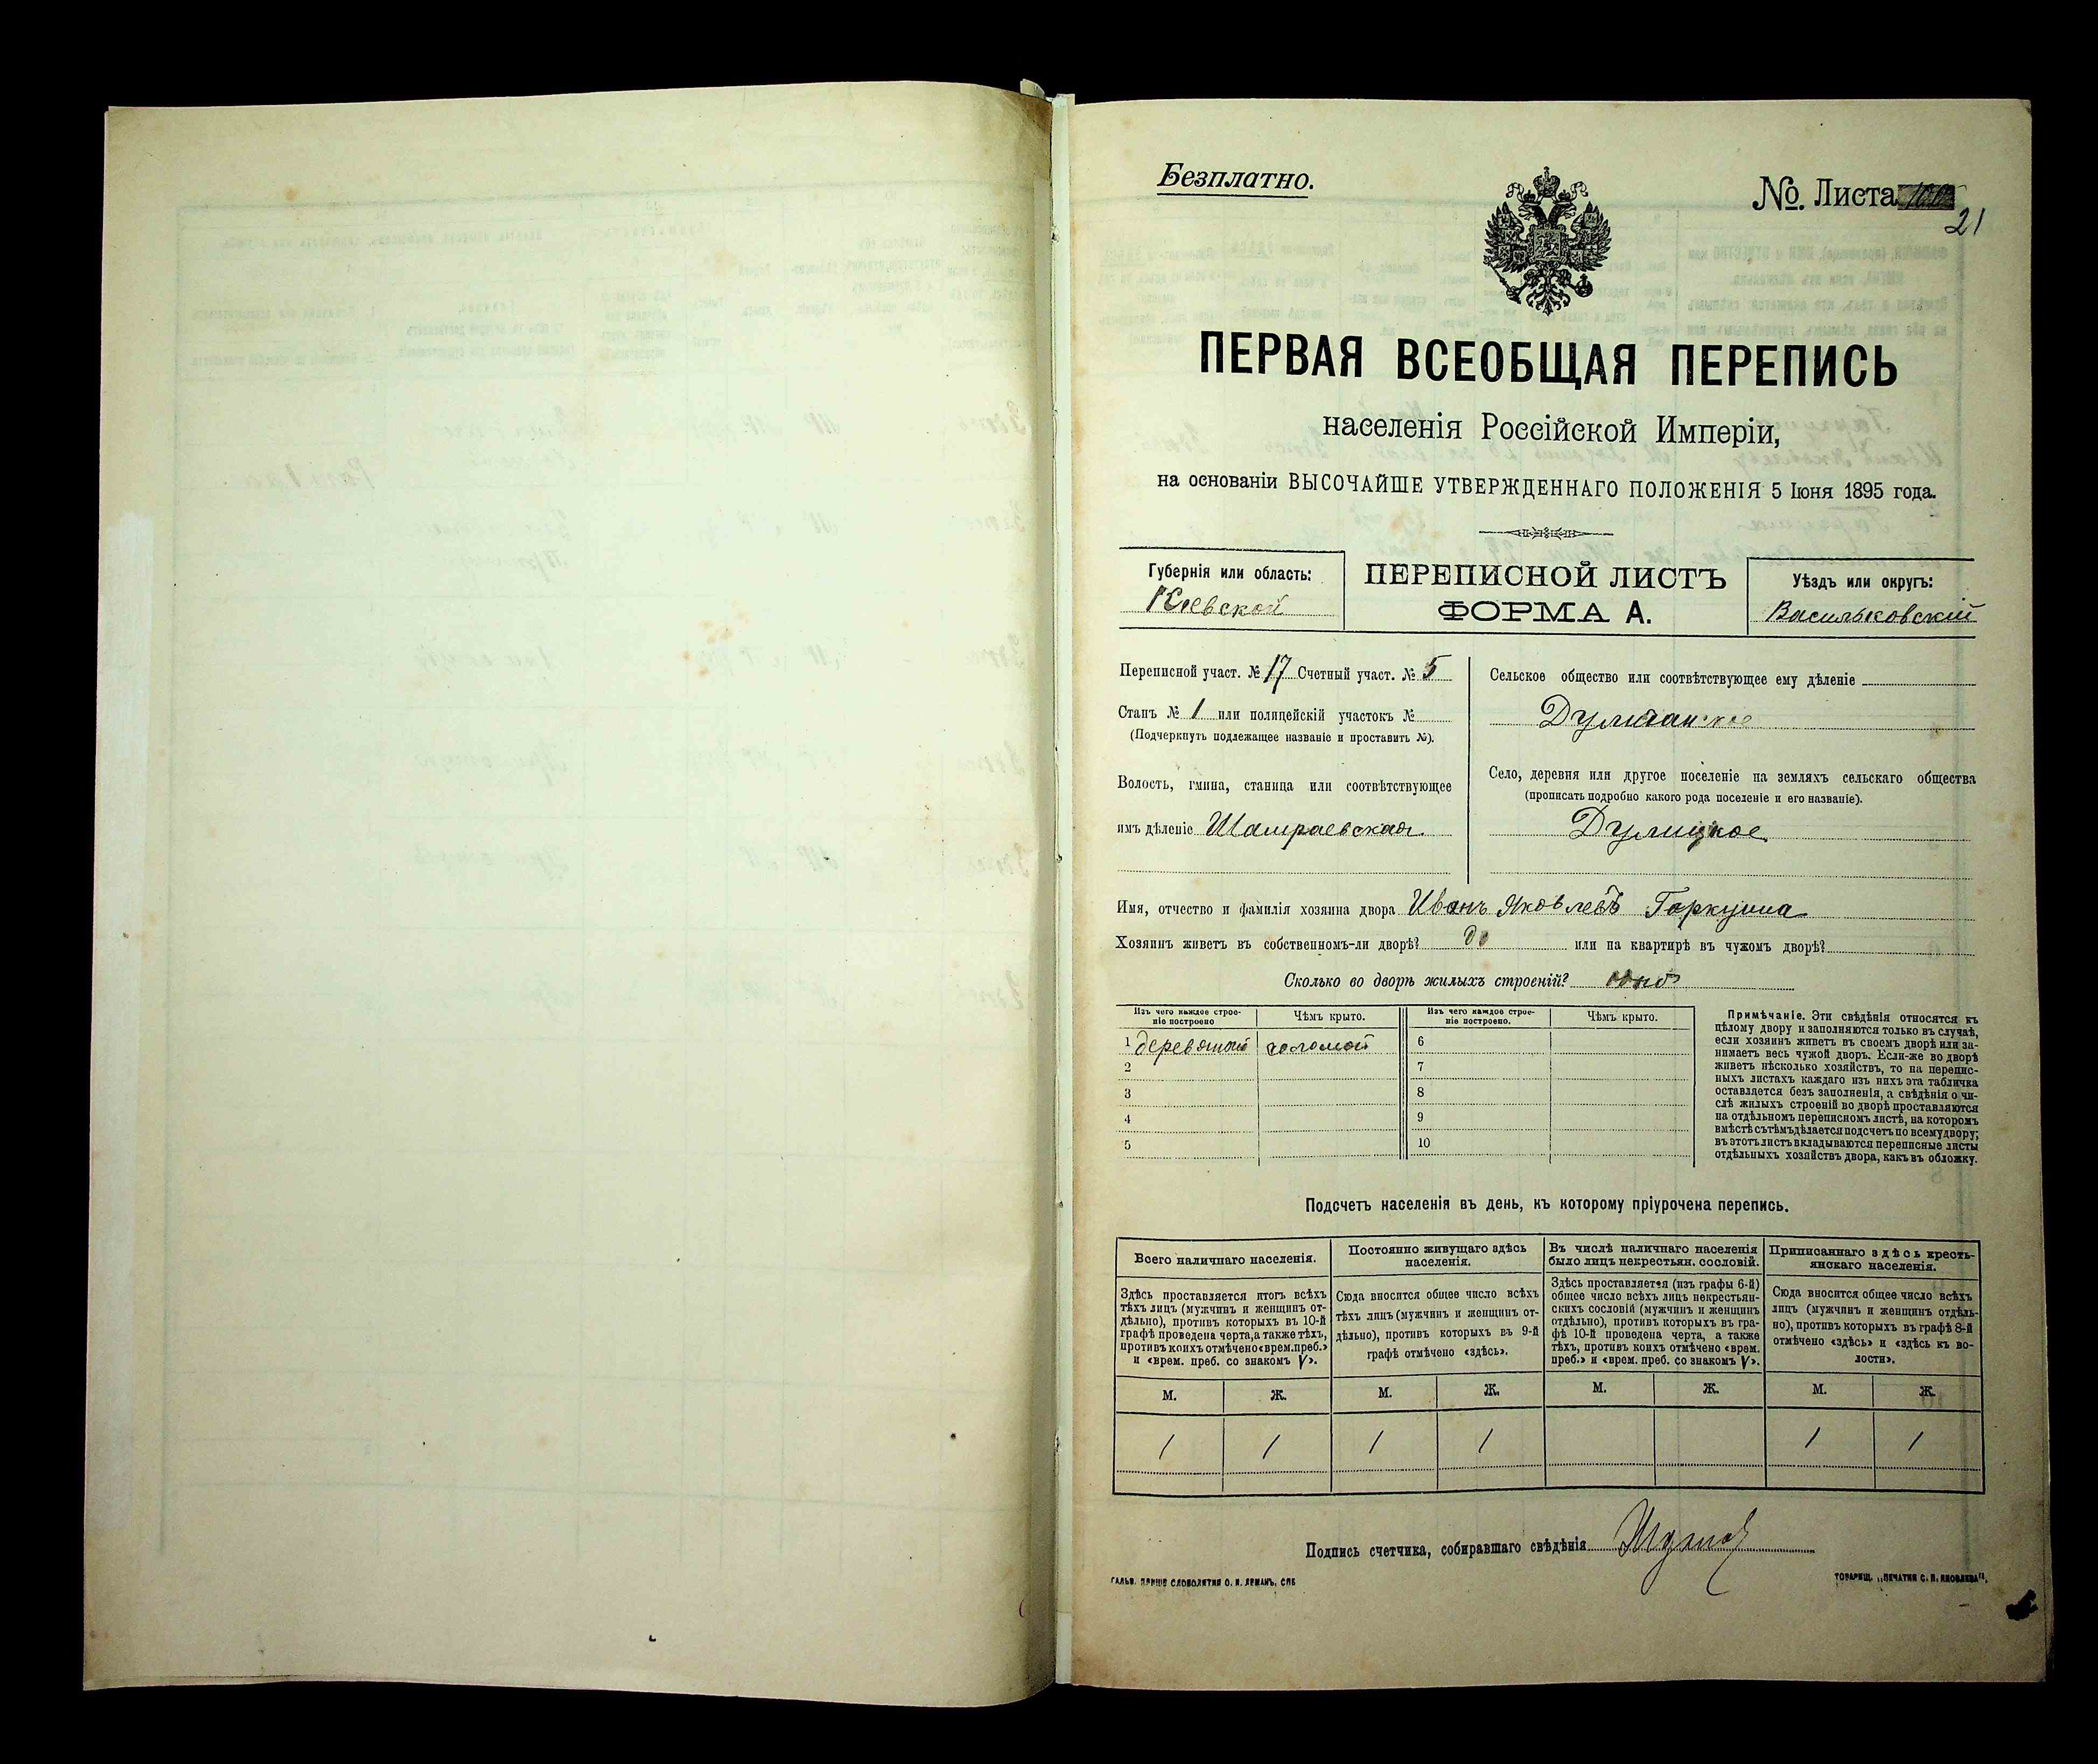 Безплатно.
№ Листа
21
ПЕРВАЯ ВСЕОБЩАЯ ПЕРЕПИСЬ
населенія Россійской Имперіи,
на основаніи ВЫСОЧАЙШЕ УТВЕРЖДЕННАГО ПОЛОЖЕНІЯ 5 Іюня 1895 года.
Губернія или область:
Кіевской
ПЕРЕПИСНОЙ ЛИСТЪ
ФОРМА А.
Уѣздъ или округъ:
Васильковскій
Переписной участ. № 17 Счетный участ. № 5
Станъ № 1 или полицейскій участокъ №
(Подчеркнуть подлежащее названіе и проставить №).
Волость, гмина, станица или соотвѣтствующее
имъ дѣленіе Шамраевская
Сельское общество или соотвѣтствующее ему дѣленіе
Село, деревня или другое поселеніе на земляхъ сельскаго общества
(прописать подробно какого рода поселеніе и его названіе).
Дулицкое
Имя, отчество и фамилія хозяина двора Иванъ Яковлевъ Горкуша
Хозяинъ живетъ въ собственномъ-ли дворѣ? да или на квартирѣ въ чужомъ дворѣ?
Сколько во дворѣ жилыхъ строеній? одно
Изъ чего каждое строе-
ніе построено
Чѣмъ крыто.
Изъ чего каждое строе-
ніе построено.
Чѣмъ крыто.
1 соломой 6
2 7
3 8
4 9
5 10
Примѣчаніе. Эти свѣдѣнія относятся къ
цѣлому двору и заполняются только въ случаѣ,
если хозяинъ живетъ въ своемъ дворѣ или за-
нимаетъ весь чужой дворъ. Если-же во дворѣ
живетъ нѣсколько хозяйствъ, то на перепис-
ныхъ листахъ каждаго изъ нихъ эта табличка
оставляется безъ заполненія, а свѣдѣнія о чи-
слѣ жилыхъ строеній во дворѣ проставляются
на отдѣльномъ переписномъ листѣ, на которомъ
вмѣстѣ съ тѣмъ дѣлается подсчетъ по всему двору;
въ этотъ листъ вкладываются переписные листы
отдѣльныхъ хозяйствъ двора, какъ въ обложку.
Подсчетъ населенія въ день, къ которому пріурочена перепись.
Всего наличнаго населенія.
Здѣсь проставляется итогъ всѣхъ
тѣхъ лицъ (мужчинъ и женщинъ от-
дѣльно), противъ которыхъ въ 10-й
графѣ проведена черта, а также тѣхъ,
противъ коихъ отмѣчено «врем. преб.»
и «врем. преб. со знакомъ V».
Постоянно живущаго здѣсь
населенія.
Сюда вносится общее число всѣхъ
тѣхъ лицъ (мужчинъ и женщинъ от-
дѣльно), противъ которыхъ въ 9-й
графѣ отмѣчено «здѣсь».
Въ числѣ наличнаго населенія
было лицъ некрестьян. сословій.
Здѣсь проставляется (изъ графы 6-й)
общее число всѣхъ лицъ некрестьян-
скихъ сословій (мужчинъ и женщинъ
отдѣльно), противъ которыхъ въ гра-
фѣ 10-й проведена черта, а также
тѣхъ, противъ коихъ отмѣчено «врем.
преб.» и «врем. преб. со знакомъ V».
Приписаннаго здѣсь кресть-
янскаго населенія.
Сюда вносится общее число всѣхъ
лицъ (мужчинъ и женщинъ отдѣль-
но), противъ которыхъ въ графѣ 8-й
отмѣчено «здѣсь» и «здѣсь къ во-
лости».
М. Ж. М. Ж. М. Ж. М. Ж.
1 1 1 1 1 1
Подпись счетчика, собиравшаго свѣдѣнія
ТОВАРИЩ. „ПЕЧАТНЯ С. П. ЯКОВЛЕВА".